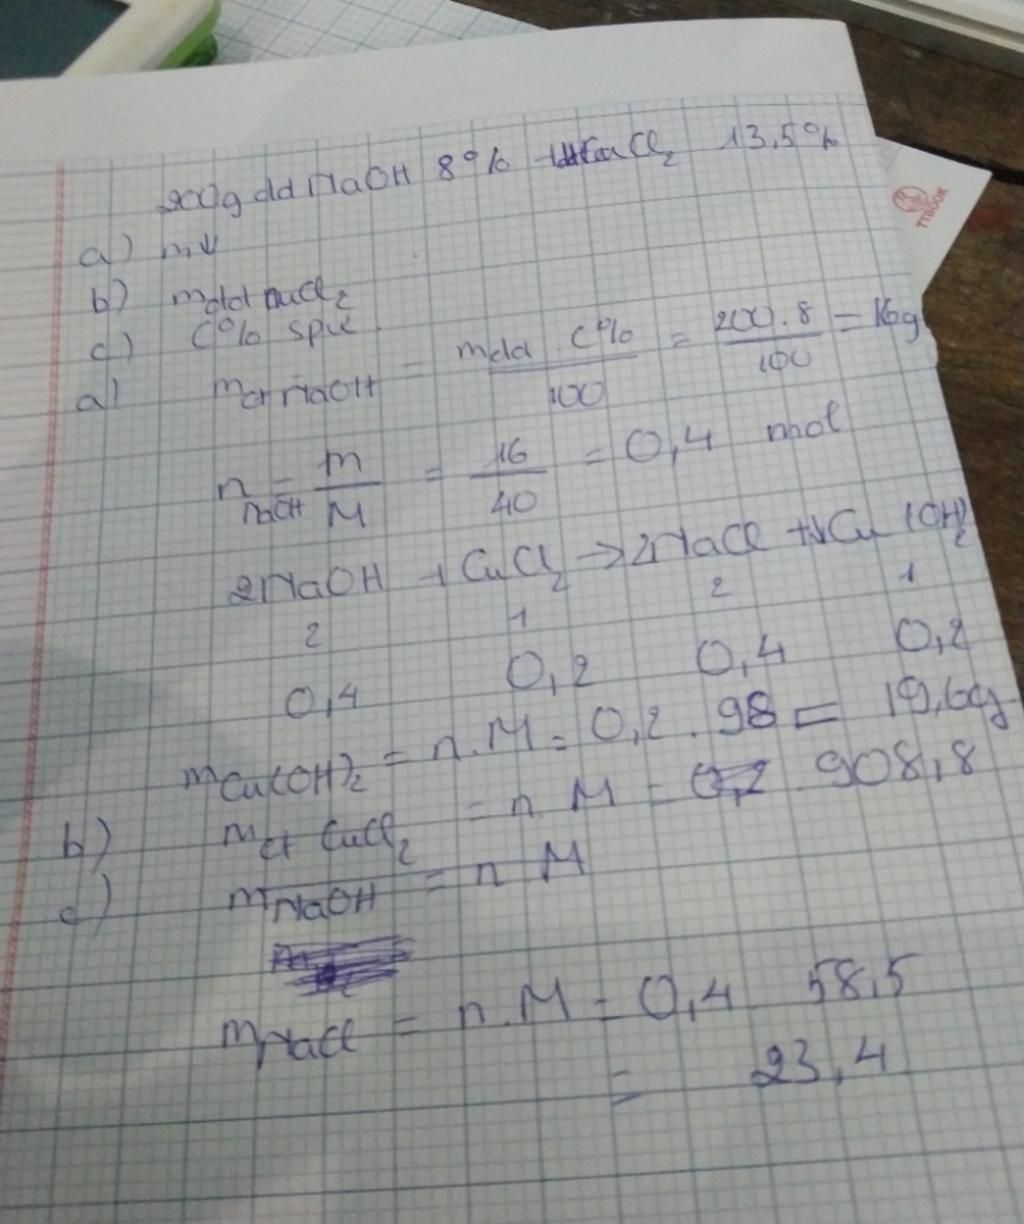 200g dd NaOH 8% CuCl₂ 13,5%
a) m↓
b) mdd CuCl₂
c) C% spứ
a) mct NaOH = mdd . C% / 100 = 200 . 8 / 100 = 16g
n NaOH = m / M = 16 / 40 = 0,4 mol
2NaOH + CuCl₂ → 2NaCl + Cu(OH)₂
2 1 2 1
0,4 0,2 0,4 0,2
mCu(OH)₂ = n.M = 0,2 . 98 = 19,6g
b) mct CuCl₂ = n M = 908,8
c) mNaOH = n M
mNaCl = n.M = 0,4 58,5
= 23,4
TTBOOK